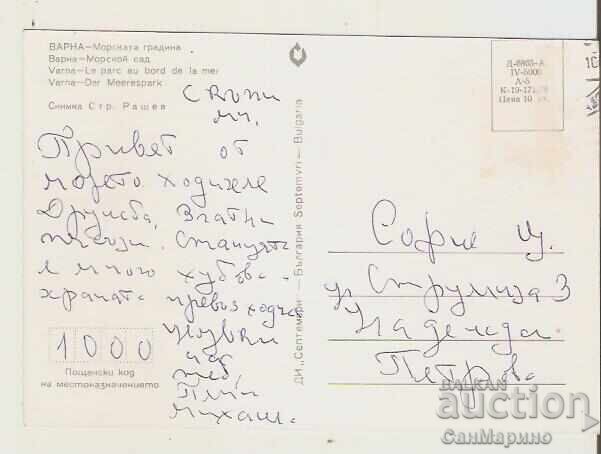 ВАРНА—Морската градина
Варна—Морской сад
Varna—Le parc au bord de la mer
Varna—Der Meerespark
Снимка Стр. Рашев
Скъпи
Привят от
морето ходихме
Дружба, Златни
пясъци. Стаичката
е много хубава
храната превъзходна
целувки
1000
Пощенски код
на местоназначението
ДИ „Септември" — България Septemvri — Bulgaria
Д-8865-А
IV-5000
А-5
Цена 10 ст.
София Ц.
ул Струмица 3
Надежда
Петрова
BALKAN
auction
СанМарино